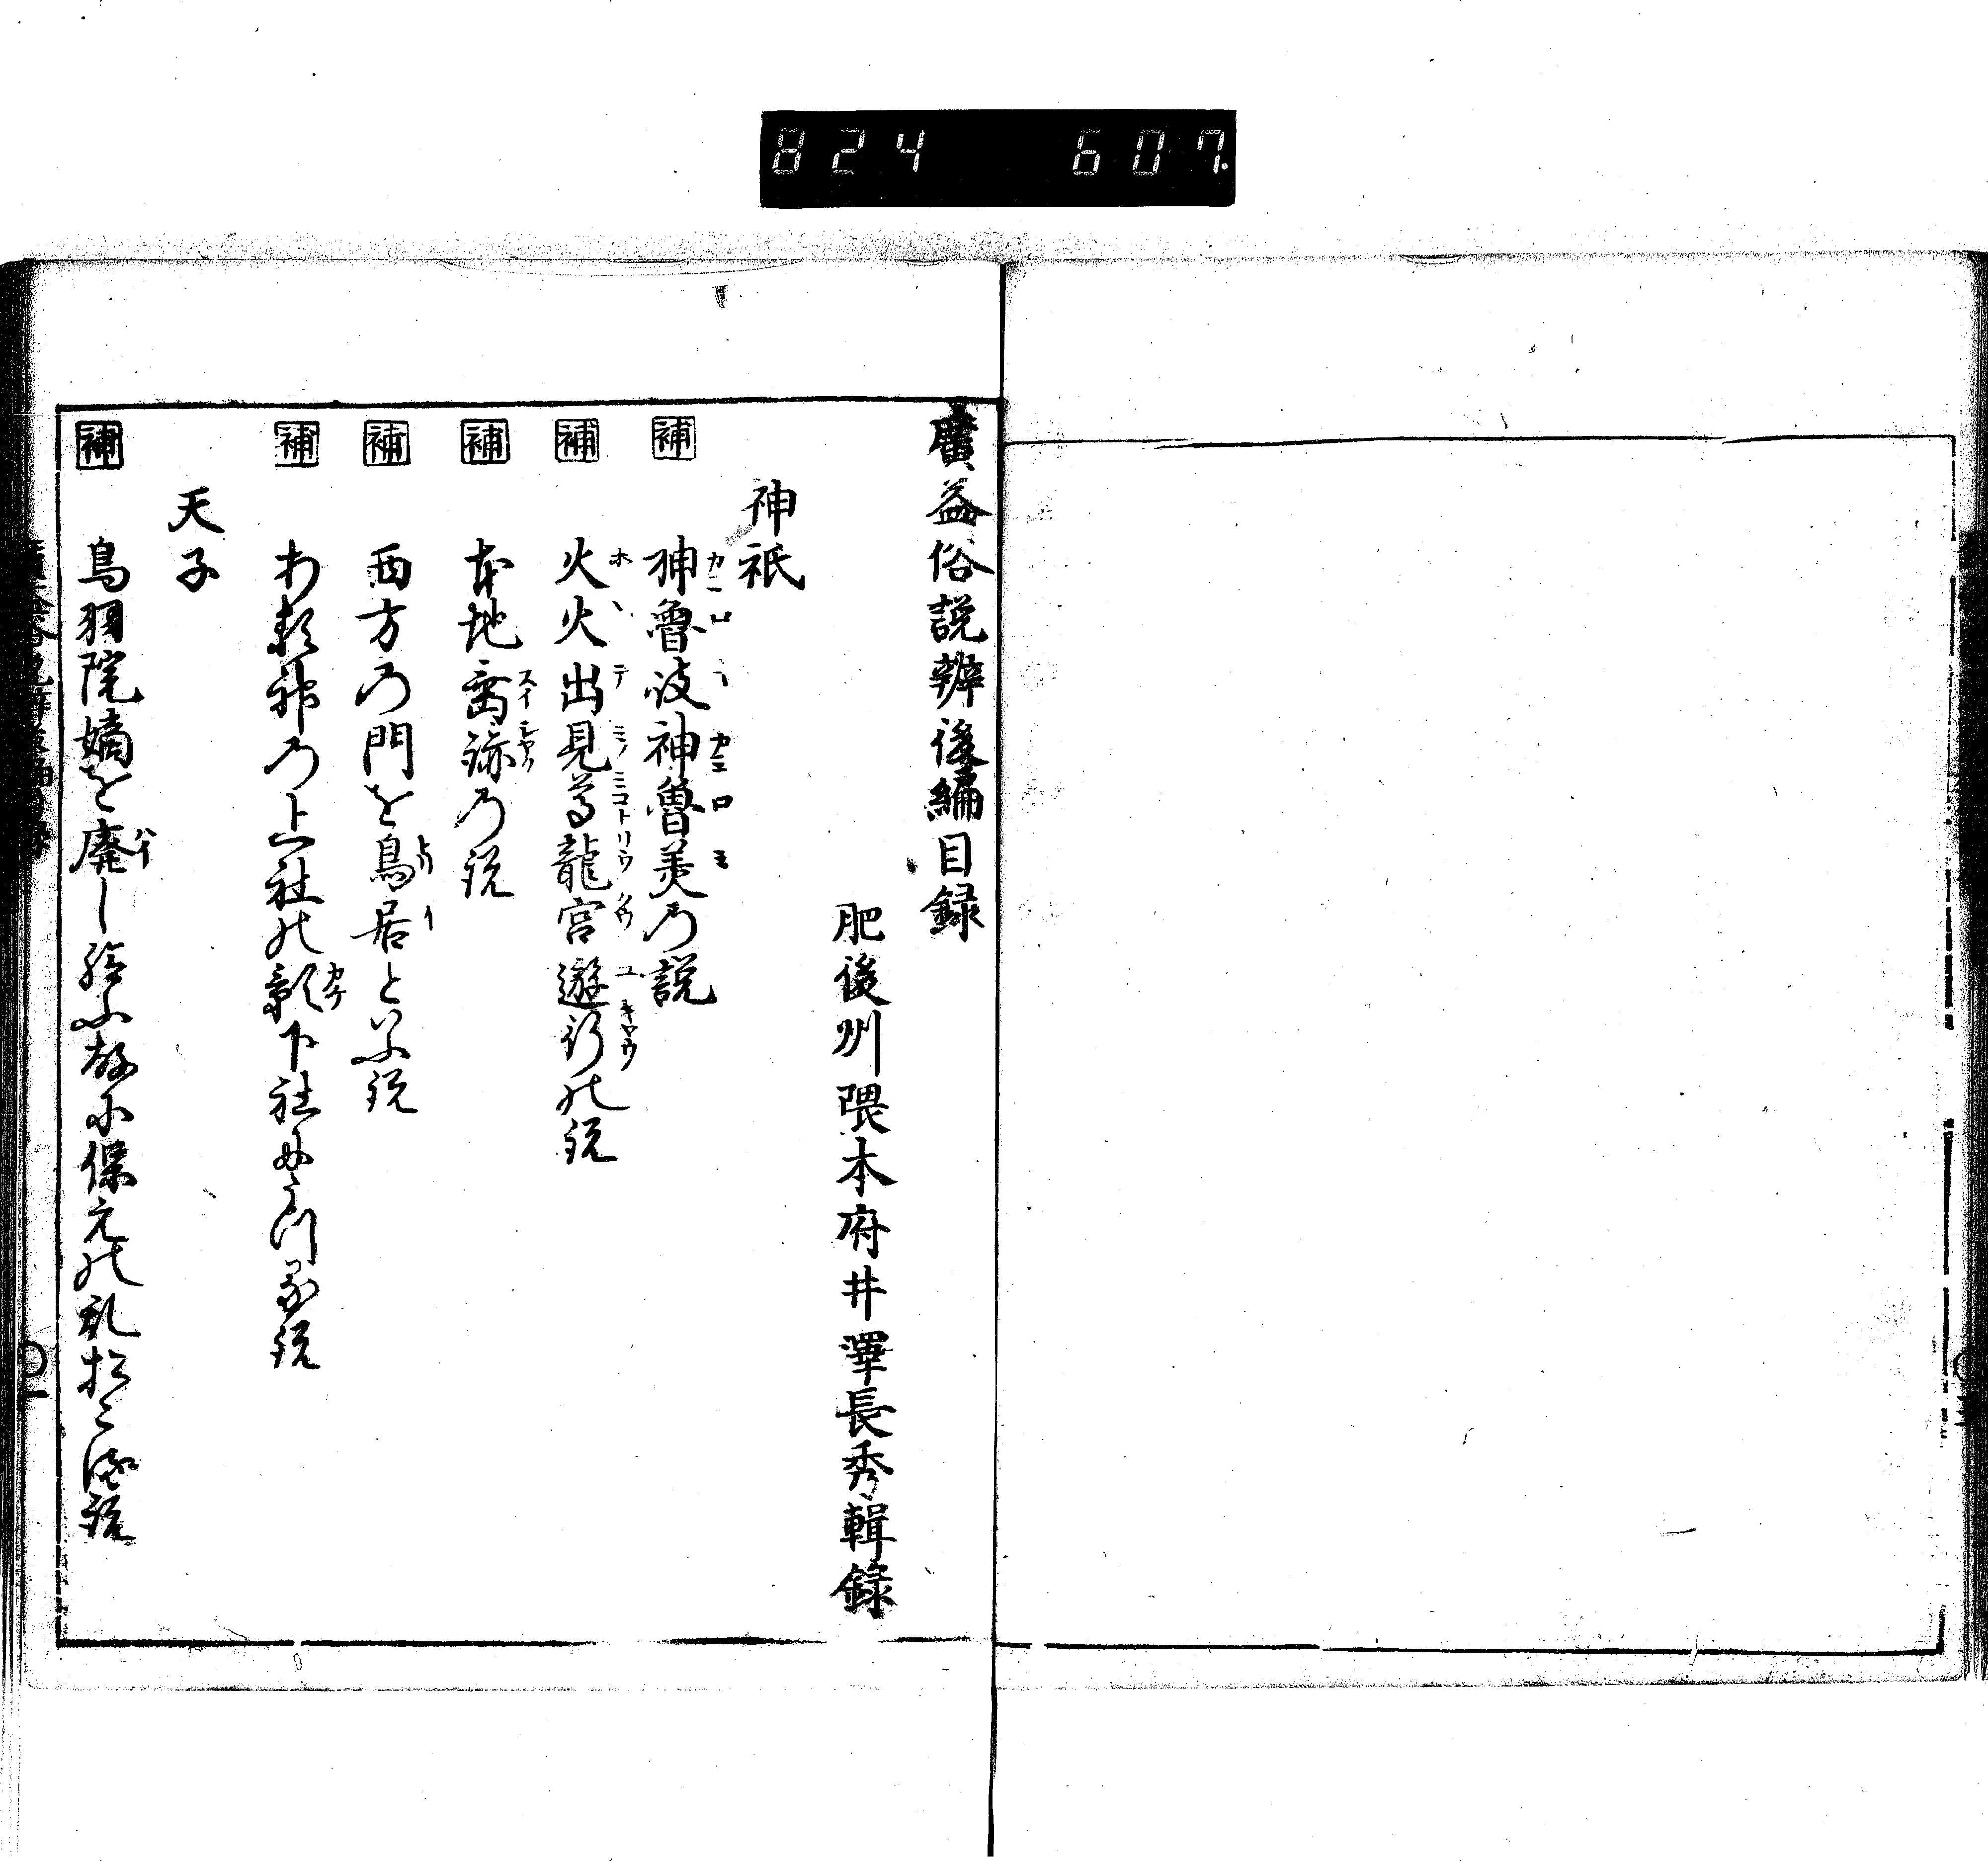 824 607
廣益俗説辨後編目録
肥後州隈本府井澤長秀輯録
神祇
補 神魯岐神魯美の説
補 火火出見尊龍宮遊行の説
補 本地垂跡の説
補 西方の門を鳥居といふ説
補 神の上社の影下社にうつる説
天子
補 鳥羽院嫡を廃し給ふ故に保元の乱おこる説